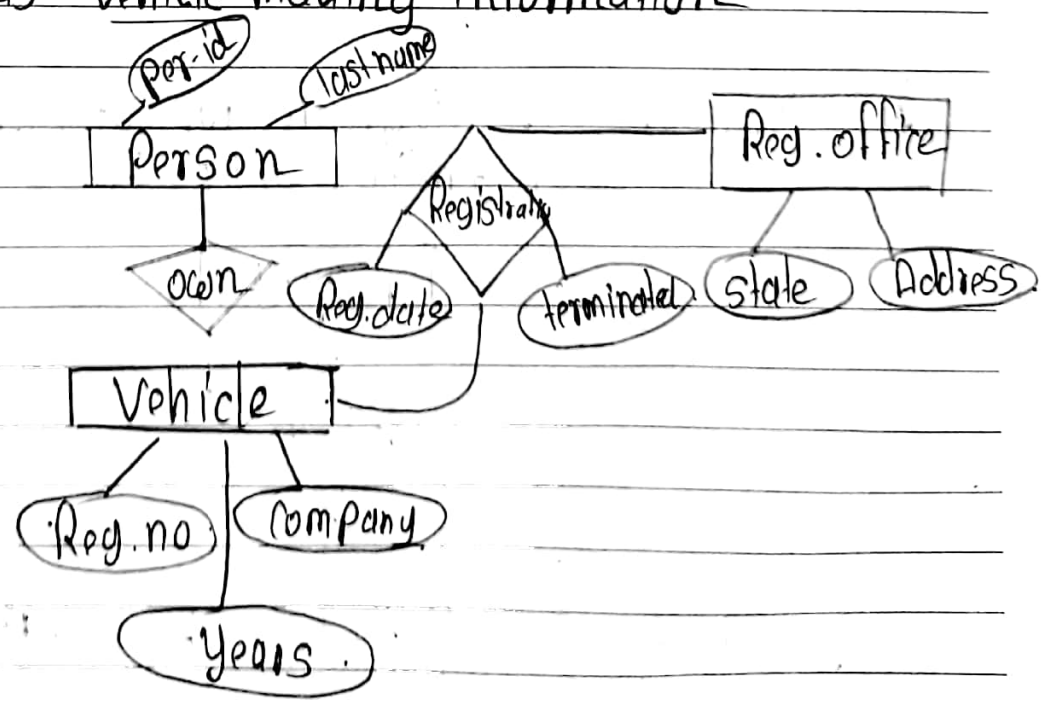 Vehicle
per-id
last name
Person
Reg. office
Registration
own
Reg. date
terminated
state
Address
Vehicle
Reg. no
company
Years